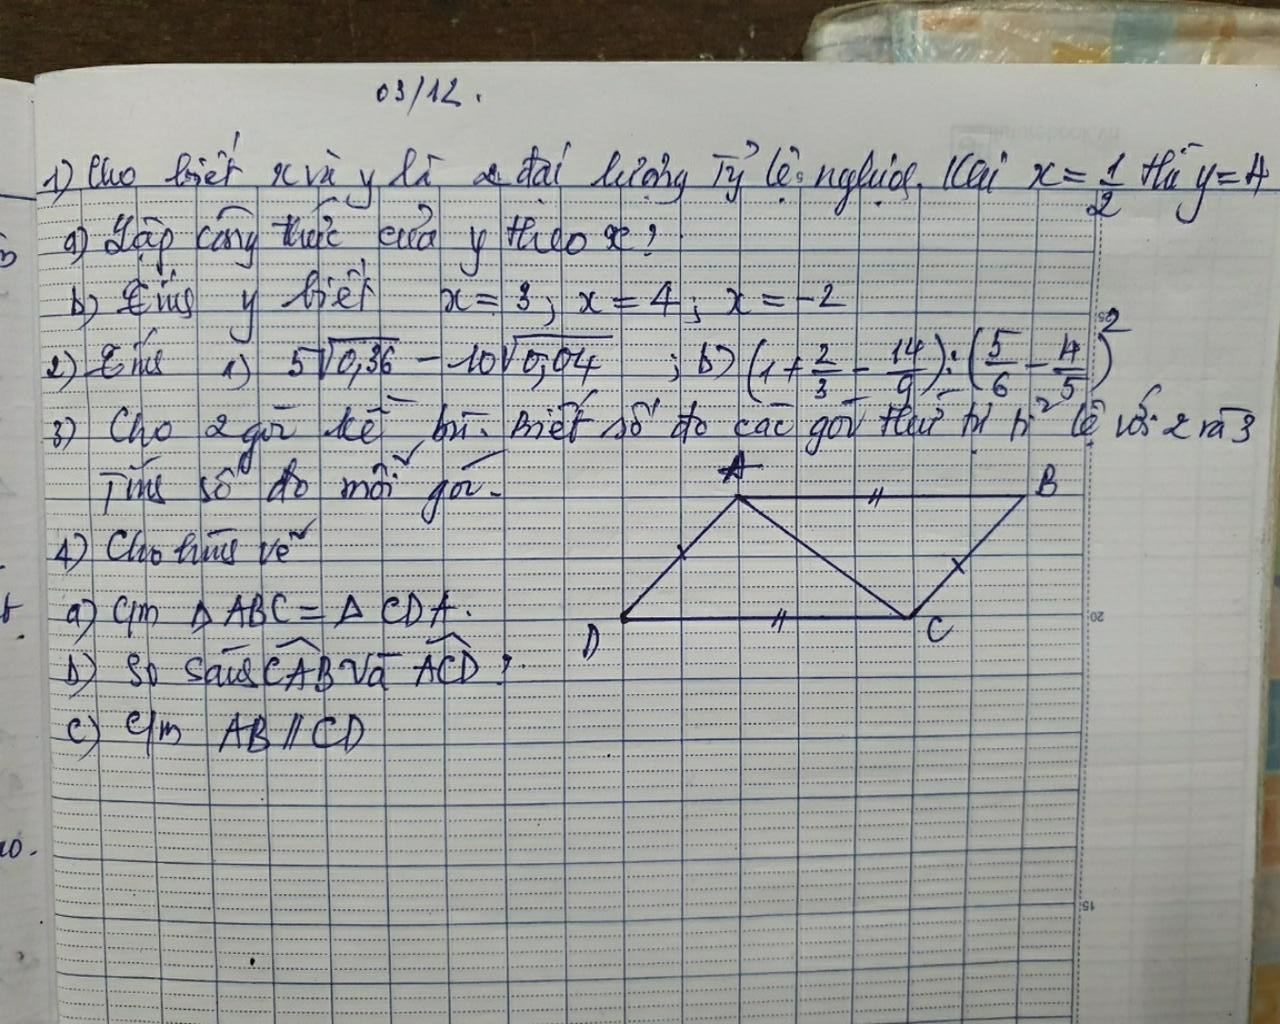 03/12.
1) Cho biết x và y là 2 đại lượng Tỷ lệ nghịch. Khi x = 1/2 thì y = 4
a) Lập công thức của y theo x?
b) Tính y biết x = 3; x = 4; x = -2
2) Tính a) 5√0,36 - 10√0,04 ; b) (1 + 2/3 - 14/9) : (5/6 - 4/5)²
3) Cho 2 góc kề bù. Biết số đo các góc thứ tự tỉ lệ với 2 và 3
Tính số đo mỗi góc.
4) Cho hình vẽ
A
B
a) C/m Δ ABC = Δ CDA.
D
C
b) So sánh CAB và ACD?
c) C/m AB // CD
20
15